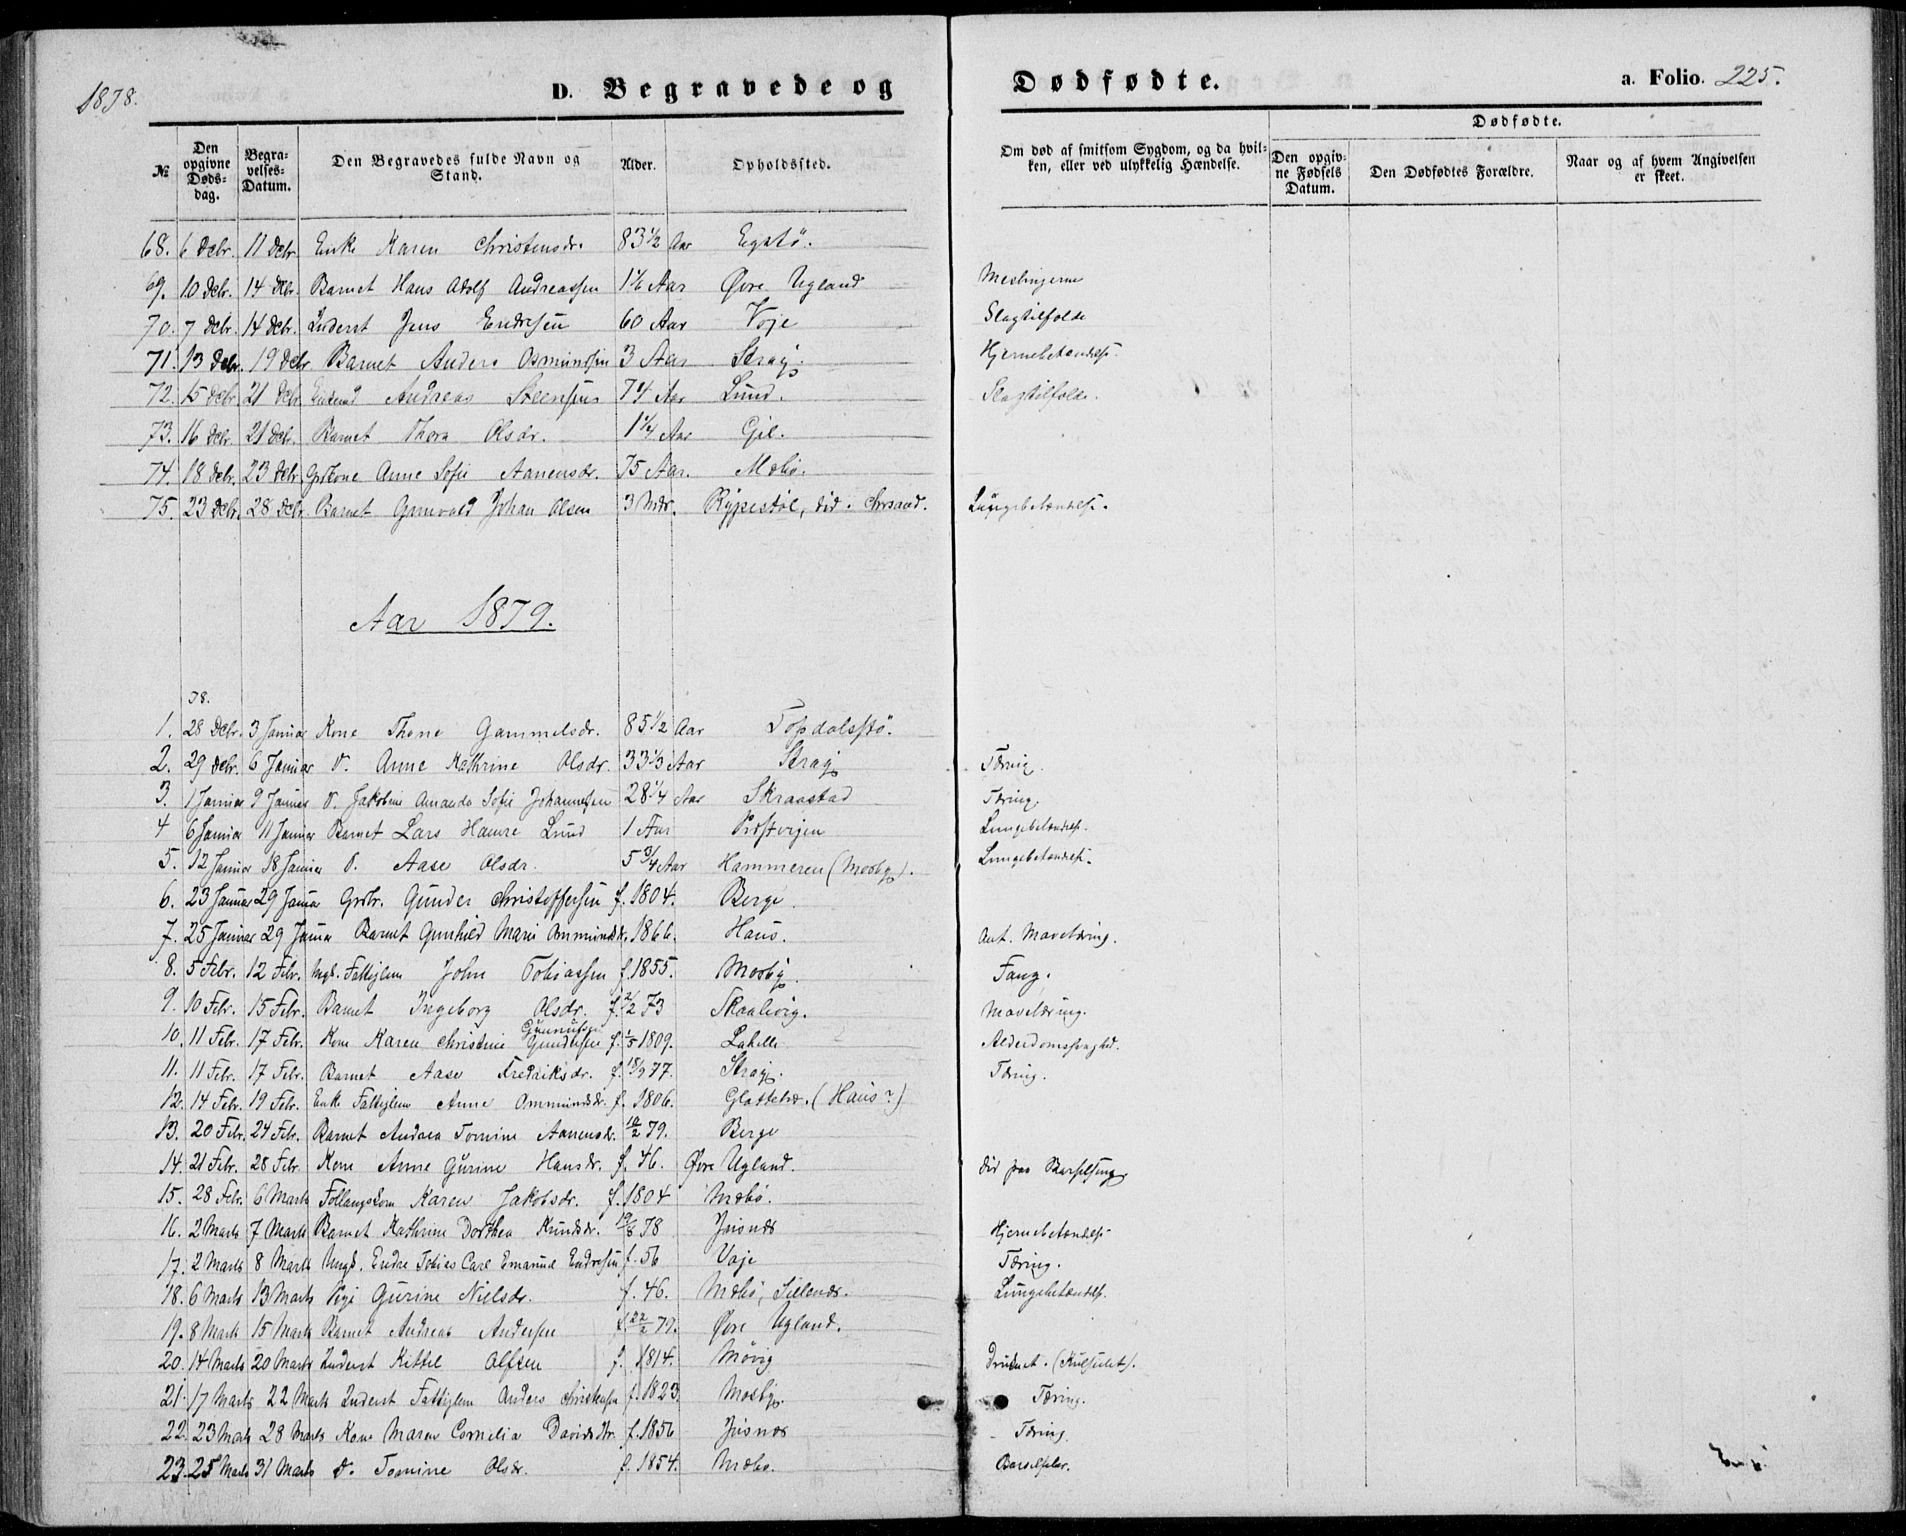 1878.
D. Begravede og Dødfødte.
a. Folio. 225.
№
Den opgivne Døds-dag.
Begra-velses-Datum.
Den Begravedes fulde Navn og Stand.
Alder.
Opholdssted.
Om død af smitsom Sygdom, og da hvil-ken, eller ved ulykkelig Hændelse.
Dødfødte.
Den opgiv-ne Fødsels Datum.
Den Dødfødtes Forældre.
Naar og af hvem Angivelsen er skeet.
68. 6 Decbr. 11 Decbr. Enke Karen Christensdr. 83 1/2 Aar Egstø.
69. 10 Decbr. 14 Decbr. Barnet Hans Adolf Andreassen 1 1/6 Aar Øvre Ugland Meslingerne
70. 7 Decbr. 14 Decbr. Inderst Jens Endresen 60 Aar Voje Slagtilfælde
71. 13 Decbr. 19 Decbr Barnet Anders Osmundsen 3 Aar Stray. Hjernebetændelse.
72. 15 Decbr 21 Decbr. Andreas Steensen 74 Aar Lund. Slagtilfælde.
73. 16 Decbr. 21 Decbr. Barnet Thora Olsdr. 1 1/4 Aar Gil.
74. 18 Decbr. 23 Decbr. Grdkone Anne Sofie Aanensdr. 75 Aar. Mæbø.
75. 23 Decbr. 28 Decbr. Barnet Gunvald Johan Olsen 3 Mdr. Rypestøl, død i Chrsand. Lungebetændelse.
Aar 1879.
78.
1. 28 Decbr. 3 Januar Kone Thone Gammelsdr. 85 1/2 Aar Topdalsstø.
2. 29 Decbr. 6 Januar D. Anne Kathrine Olsdr. 33 1/3 Aar Stray Tæring.
3. 1 Januar 9 Januar D. Jakobine Amanda Sofie Johannesen 28 1/4 Aar Skraastad Tæring.
4 6 Januar 11 Januar Barnet Lars Hamre Lund 1 Aar Prestvigen Lungebetændelse.
5. 12 Januar 18 Januar D. Aase Olsdr. 5 3/4 Aar Hammeren (Mosby). Lungebetændelse.
6. 23 Januar 29 Januar Grdbr. Gunder Christoffersen f. 1804. Berge.
7. 25 Januar 29 Januar Barnet Gunhild Marie Ommundsdr. 1866. Haus. Ant. Mavetæring.
8. 5 Febr. 12 Febr. Ungk. Fattiglem John Tobiassen f. 1855. Mosby. Tæng.
9. 10 Febr. 15 Febr. Barnet Ingeborg Olsdr. f. 2/2 73 Skaalevig. Mavetæring.
Gunnufsen
10. 11 Febr. 17 Febr. Kone Karen Christine Gundersen f. 1/5 1809. Lahelle Alderdomssvaghed.
11. 11 Febr. 17 Febr. Barnet Aase Fredriksdr. f. 18/9 77. Stray. Tæring.
12. 14 Febr. 19 Febr. Enke Fattiglem Anne Ommundsdr. f. 1806. (Haus?)
13. 20 Febr. 24 Febr. Barnet Andrea Tomine Aanensdr. 10/2 79. Berge
14. 21 Febr. 28 Febr. Kone Anne Gurine Hansdr. f. 46. Øvre Ugland. død paa Barselseng
15. 28 Febr. 6 Marts Karen Jakobsdr. f. 1804 Mæbø.
16. 2 Marts 7 Marts Barnet Kathrine Dorthea Knudsdr. 19/8 78 Justnæs Hjernebetændelse
17. 2 Marts 8 Marts Ungk. Endre Tobias Carl Emanuel Endresen f. 56 Voje Tæring.
18. 6 Marts 13 Marts Pige Gurine Nielsdr. f. 46. Mæbø, Lungebetændelse.
19. 8 Marts 15 Marts Barnet Andreas Andersen f. 22/2 79. Øvre Ugland.
20. 14 Marts 20 Marts Inderst Kittel Olsen f. 1814. Møvig Druknet.
21. 17 Marts 22 Marts Inderst Fattiglem Anders Christensen f. 1823. Mosby. Tæring.
22. 23 Marts 28 Marts Kone Maren Cornelia Davidsdtr. f. 1856 Justnæs Tæring.
23. 25 Marts 31 Marts D. Tomine Olsdr. f. 1854. Mæbø. Barselfeber.